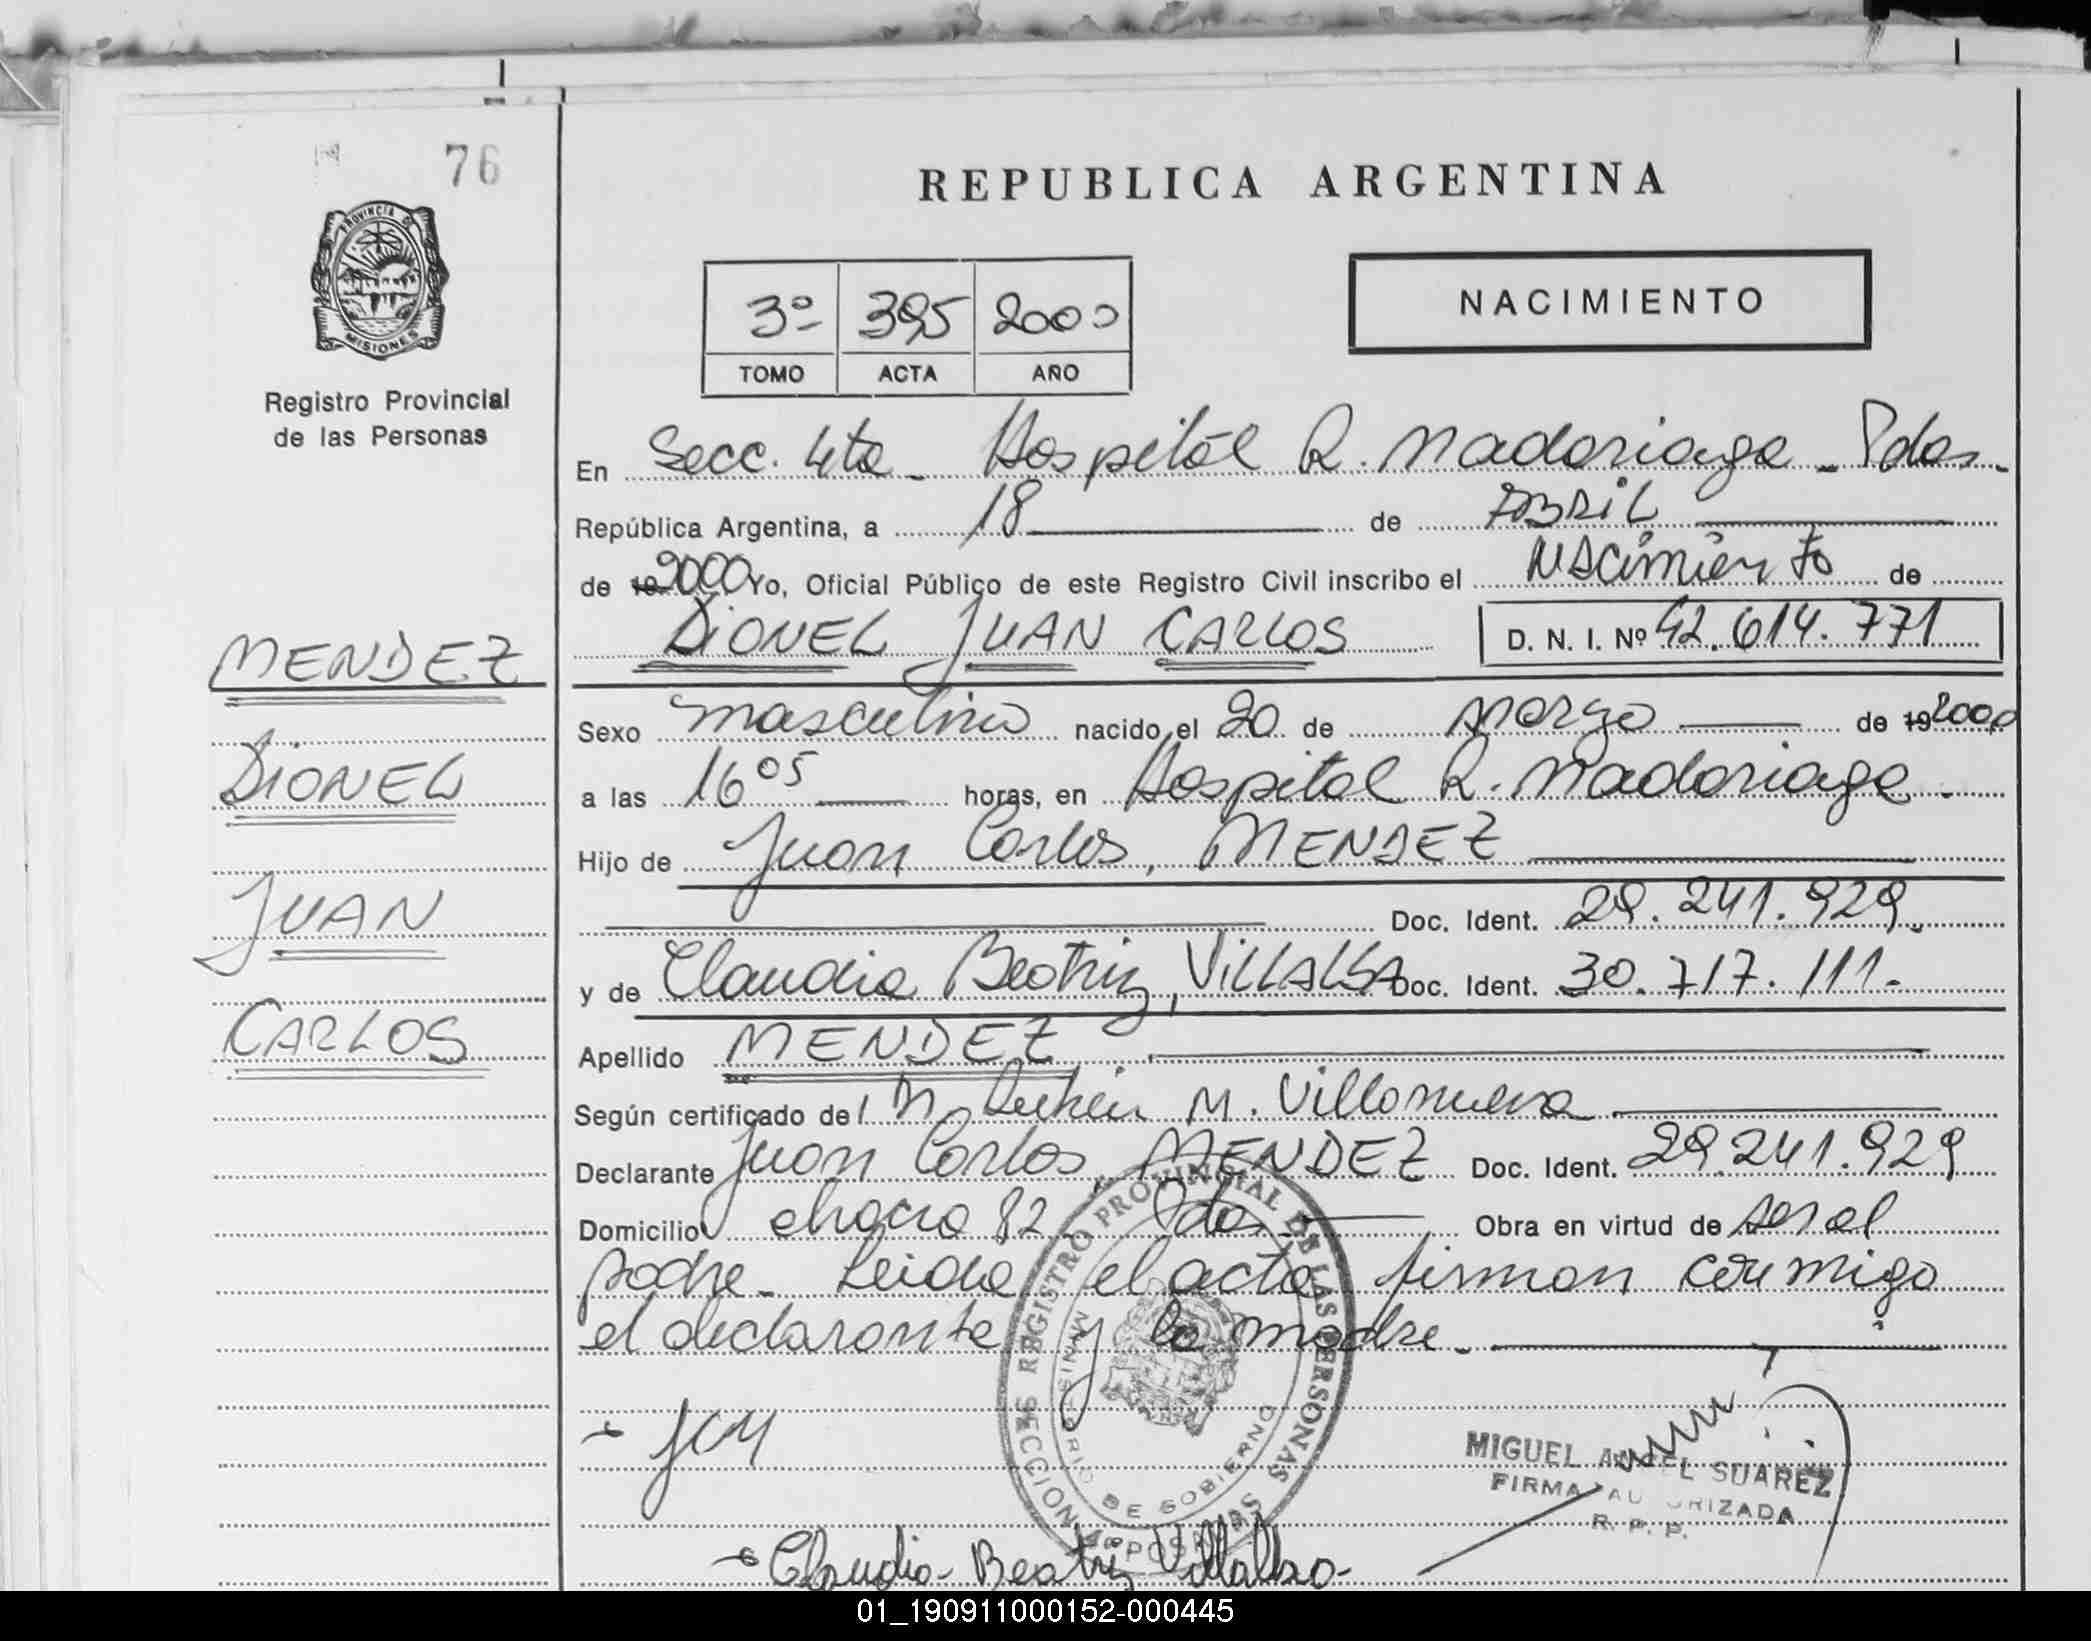 76
PROVINCIA DE
MISIONES
Registro Provincial
de las Personas
REPUBLICA ARGENTINA
3º 395 2000
TOMO ACTA AÑO
NACIMIENTO
En Secc. 4ta - Hospital R. Madariaga - Pdas.
República Argentina, a 18 de ABRIL
de 19 2000 Yo, Oficial Público de este Registro Civil inscribo el Nacimiento de
DIONEL JUAN CARLOS D. N. I. Nº 42.614.771
MENDEZ
DIONEL
JUAN
CARLOS
Sexo masculino nacido el 20 de Marzo de 19 2000
a las 16 05 horas, en Hospital R. Madariaga.
Hijo de Juan Carlos, MENDEZ
Doc. Ident. 29.241.929.
y de Claudia Beatriz, VILLALBA Doc. Ident. 30.717.111.
Apellido MENDEZ
Según certificado del M. Villanueva
Declarante Juan Carlos, MENDEZ Doc. Ident. 29.241.929
Domicilio chacra 82 Pdas. Obra en virtud de ser el
padre. Leida el acta firman conmigo
el declarante y la madre.
JCM
REGISTRO PROVINCIAL DE LAS PERSONAS
MINISTERIO DE GOBIERNO
SECCION 4º POSADAS
MIGUEL ANGEL SUAREZ
FIRMA AUTORIZADA
R. P. P.
Claudia Beatriz Villalba
01_190911000152-000445